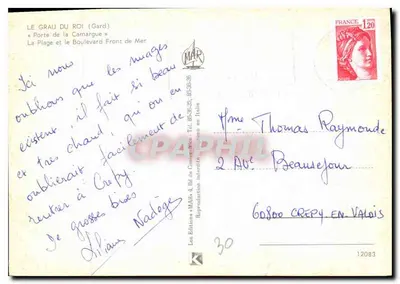 LE GRAU DU ROI (Gard)
« Porte de la Camargue »
La Plage et le Boulevard Front de Mer
Ici nous
oublions que les nuages
existent il fait si beau
et très chaud, qu'on en
oublierait facilement de
rentrer à Crépy.
De grosses bises
Liliane Nadège
MAR
Reproduction interdite
30
K
FRANCE
1,20
Mme Thomas Raymonde
2 Av. Beausejour
60800 CREPY-EN-VALOIS
12083